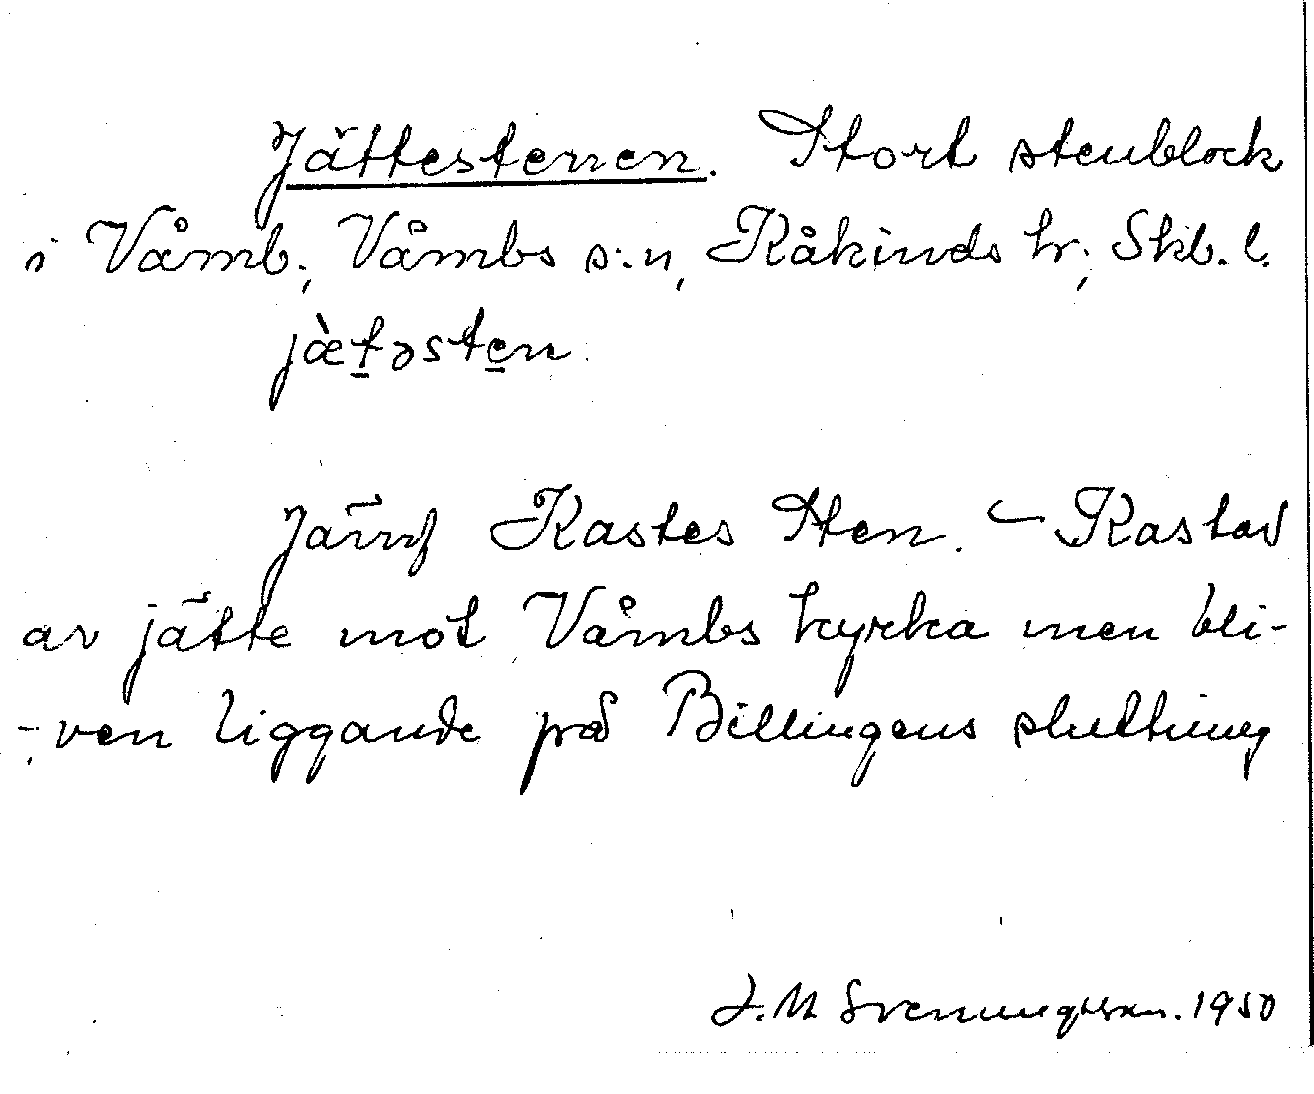 Jättestenen. Stort stenblock
i Våmb, Våmbs s:n, Kåkinds hr, Skb. l.
jæ̀t̲əste̲n
Jämf Kastes Sten. – Kastad
av jätte mot Våmbs kyrka men bli-
-ven liggande på Billingens sluttning
J. M Svenningsson. 1950